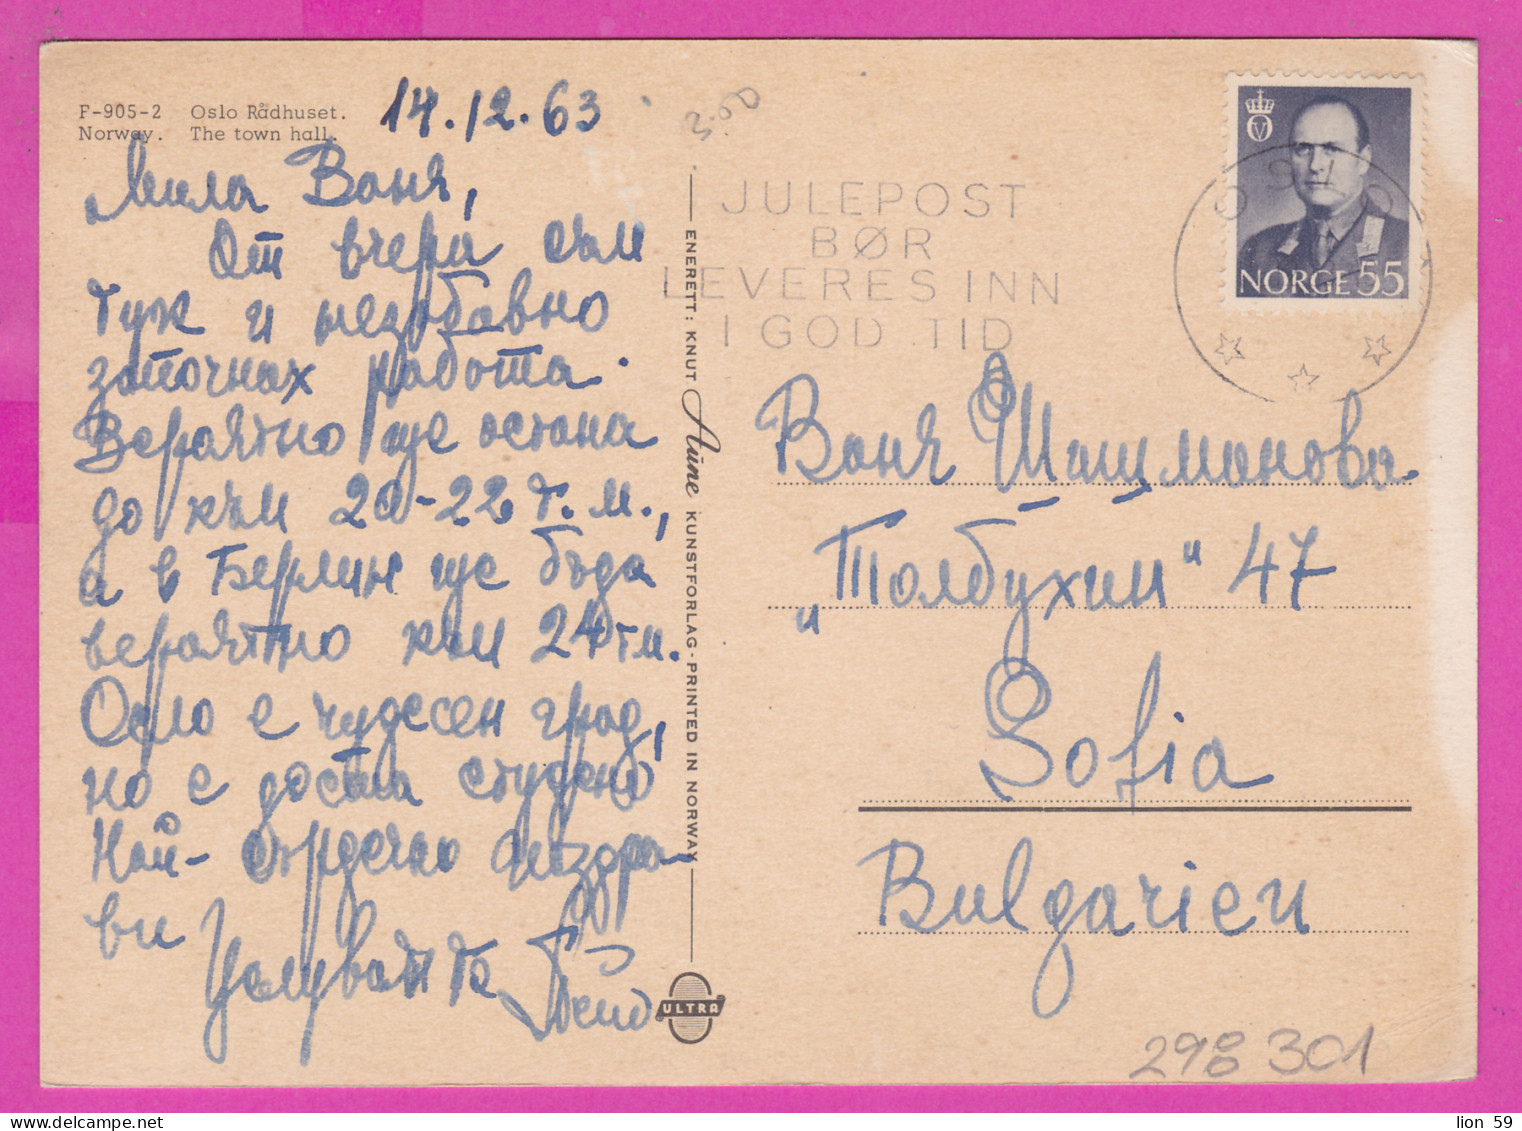 F-905-2 Oslo Rådhuset.
Norway. The town hall.
14.12.63
Мила Ваня,
От вчера съм
тук и незабавно
започнах работа.
Вероятно ще остана
до към 20-22 т.м.,
а в Берлин ще бъда
вероятно към 24 т.м.
Осло е чудесен град,
но е доста студено
Най-сърдечно поздра-
ви
Целувам те
3.00
ENERETT: KNUT Aune KUNSTFORLAG - PRINTED IN NORWAY
ULTRA
JULEPOST
BØR
LEVERES INN
I GOD TID
OSLO
V
NORGE 55
Ваня Шишманова
"Толбухин" 47
Sofia
Bulgarien
298 301
lion 59